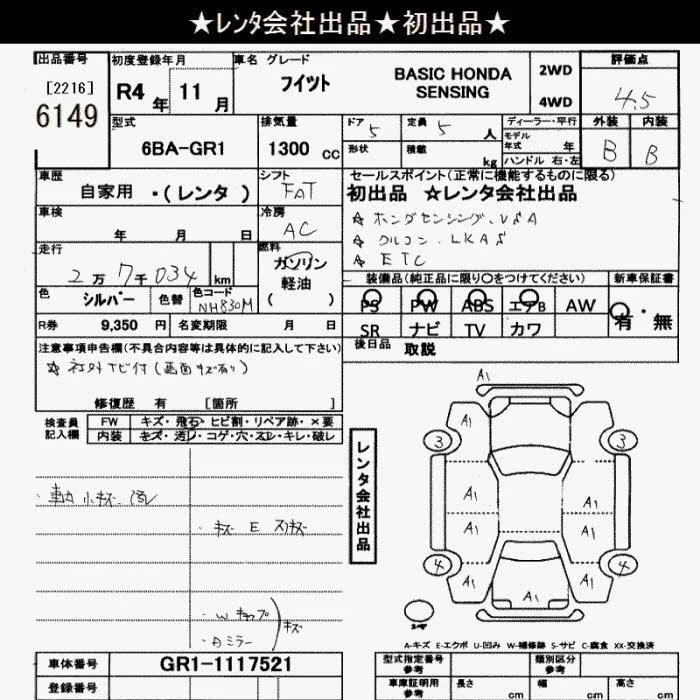 ★レンタ会社出品★初出品★
出品番号 初度登録年月 車名 グレード 評価点
[2216] R4年 11月 フィット BASIC HONDA SENSING 2WD 4WD 4.5
6149
型式 排気量 ドア 5 定員 5人 ディーラー・平行 外装 内装
モデル年式 年
6BA-GR1 1300 cc 形状 積載 kg ハンドル 右・左 B B
車歴 シフト セールスポイント(正常に機能するものに限る)
自家用 ・(レンタ) FAT 初出品 ☆レンタ会社出品
車検 冷房 ☆ ホンダセンシング、VSA
年 月 日 AC ☆ クルコン、LKAS
走行 燃料 ☆ ETC
2万7千034km ガソリン 軽油 ( )
装備品(純正品に限り○をつけてください) 新車保証書
色 シルバー 色替 色コード NH830M
PS PW ABS エアB AW 有・無
R券 9,350 円 名変期限 月 日
SR ナビ TV カワ
後日品 取説
注意事項申告欄(不具合内容等は具体的に記入して下さい)
☆ 社外ナビ付(画面キズ有り)
修復歴 有 [箇所 ]
検査員記入欄 FW キズ・飛石・ヒビ割・リペア跡・×要
内装 キズ・汚レ・コゲ・穴・スレ・キレ・破レ
レンタ会社出品
A1
A1
3 3
A1 A1
A1 A1
4 4
A1 A1 A1
・車内 小キズ、汚レ
・キズ E スリキズ
・Wキャップ
・Dミラー
キズ
A-キズ E-エクボ U-凹み W-補修跡 S-サビ C-腐食 XX-交換済
車体番号 GR1-1117521 型式指定番号 参考 類別区分 参考
登録番号 車庫証明用 参考 長さ cm 幅 cm 高さ cm